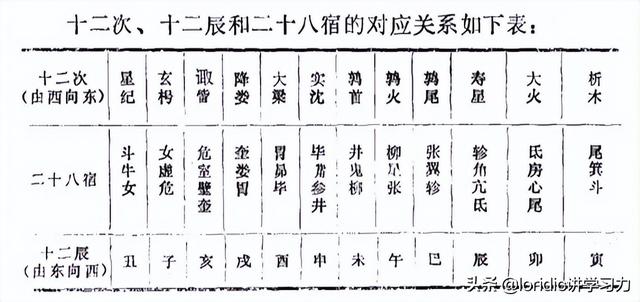 十二次、十二辰和二十八宿的对应关系如下表：
十二次（由西向东） 星纪 玄枵 诹訾 降娄 大梁 实沈 鹑首 鹑火 鹑尾 寿星 大火 析木
二十八宿 斗牛女 女虚危 危室壁奎 奎娄胃 胃昴毕 毕觜参井 井鬼柳 柳星张 张翼轸 轸角亢氐 氐房心尾 尾箕斗
十二辰（由东向西） 丑 子 亥 戌 酉 申 未 午 巳 辰 卯 寅
头条 @loridio讲学习力